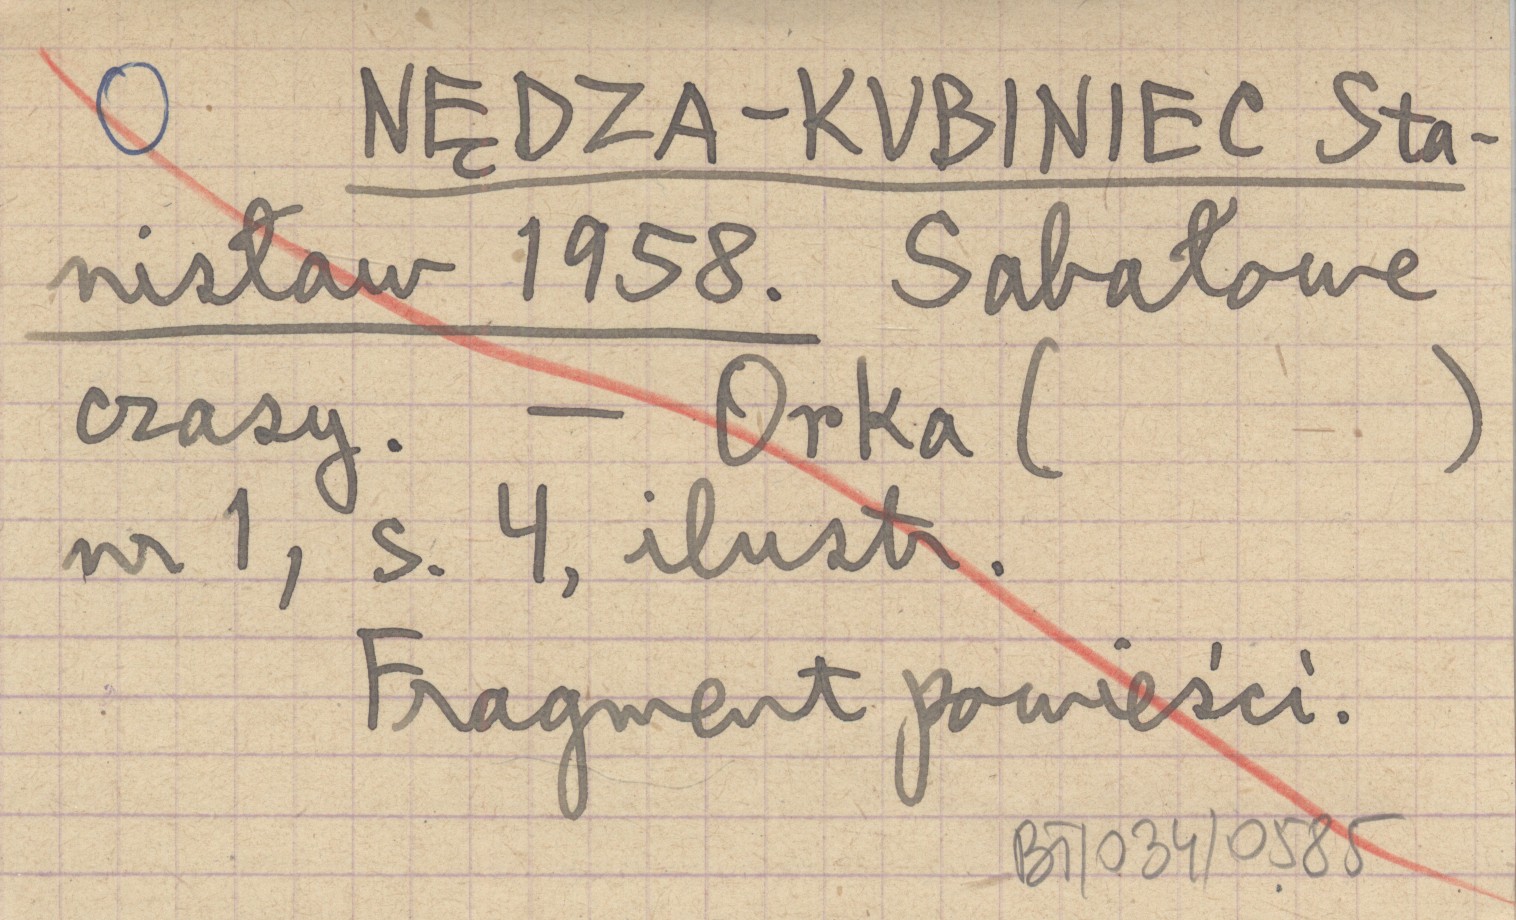 O NĘDZA-KUBINIEC Sta-
nisław 1958. Sabałowe
czasy. — Orka ( )
nr 1, s. 4, ilustr.
Fragment powieści.
BT/034/0585